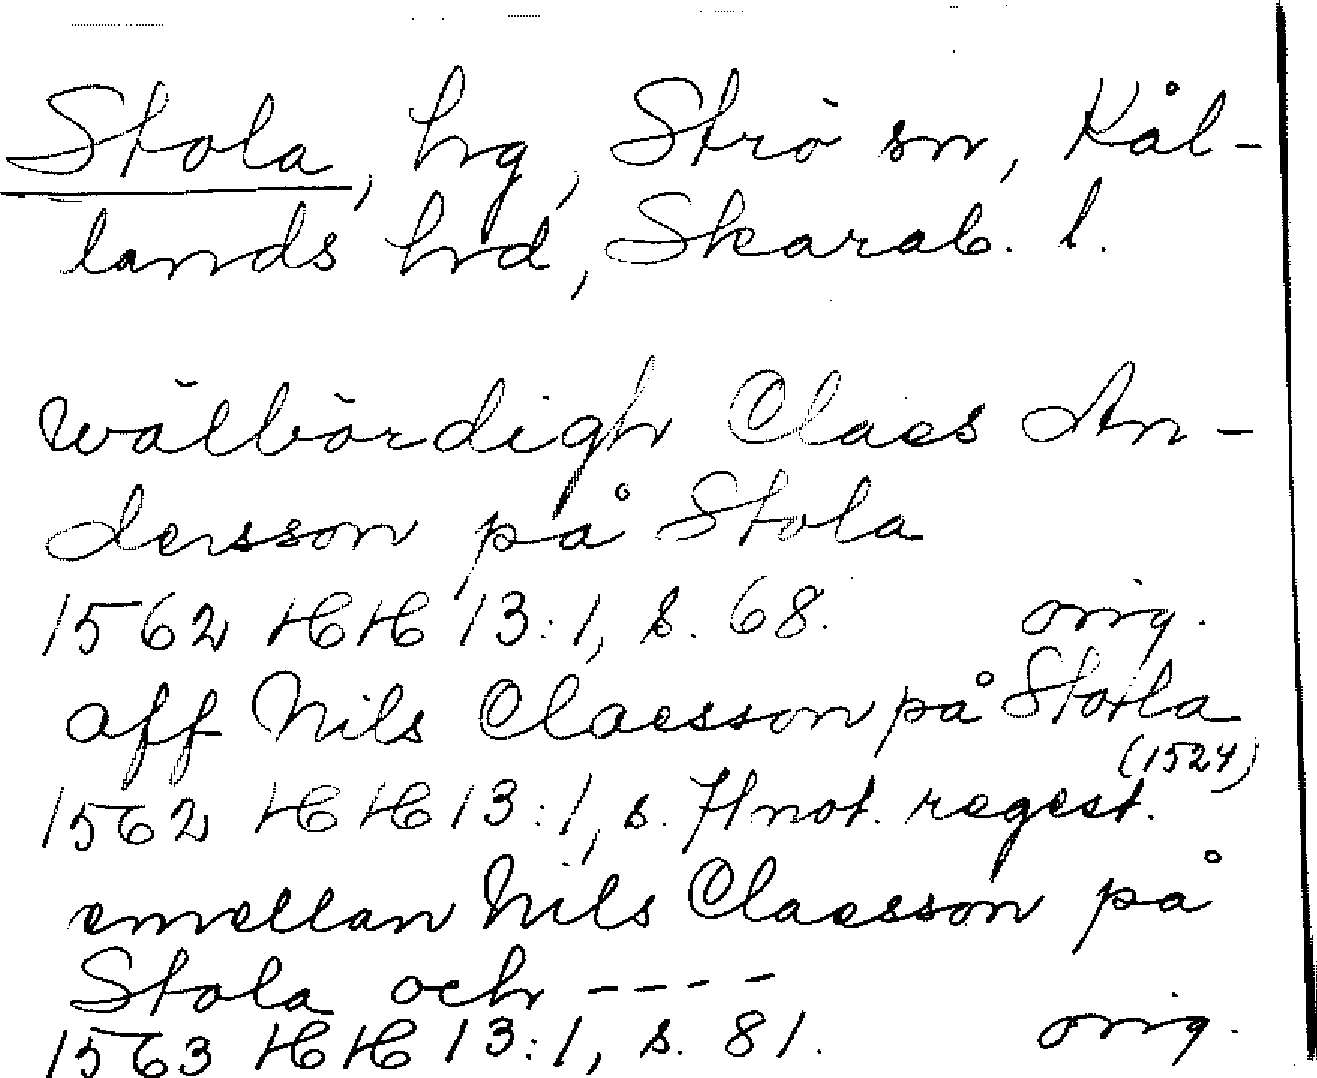 Stola, hg, Strö sn, Kål-
lands hd, Skarab. l.
wälbördigh Claes An-
dersson på Stola
1562 HH 13:1, s. 68. orig.
aff Nils Claesson på Stola
(1524)
1562 HH 13:1, s. 71 not. regest.
emellan Nils Claesson på
Stola och ----
1563 HH 13:1, s. 81. orig.